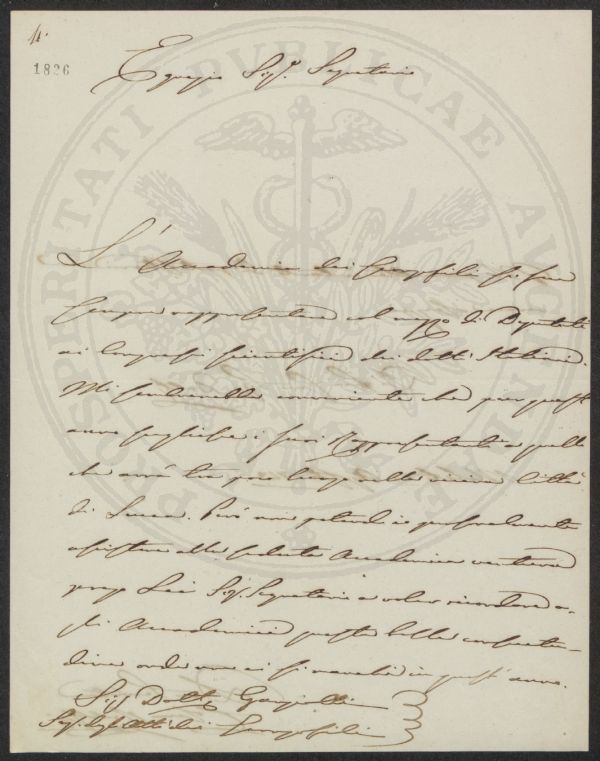 4.
1826
Egregio Sigr. Segretario
L'Accademia dei Georgofili si fece
sempre rappresentare col mezzo di Deputati
ai Congressi scientifici dei dotti Italiani.
Mi sembrerebbe conveniente che per quest'
anno scegliesse i suoi Rappresentanti a quello
che avrà tra poco luogo nella vicina Città
di Lucca. Però non potendo io personalmente
assistere alla seduta Accademica ventura
prego Lei Sigr. Segretario a voler ricordare a-
gli Accademici questa bella consuetu-
dine onde non si manchi in quest'anno.
Sigr. Dottr.
Segr. degli Atti dei Georgofili
PROSPERITATI PUBLICAE AUGENDAE